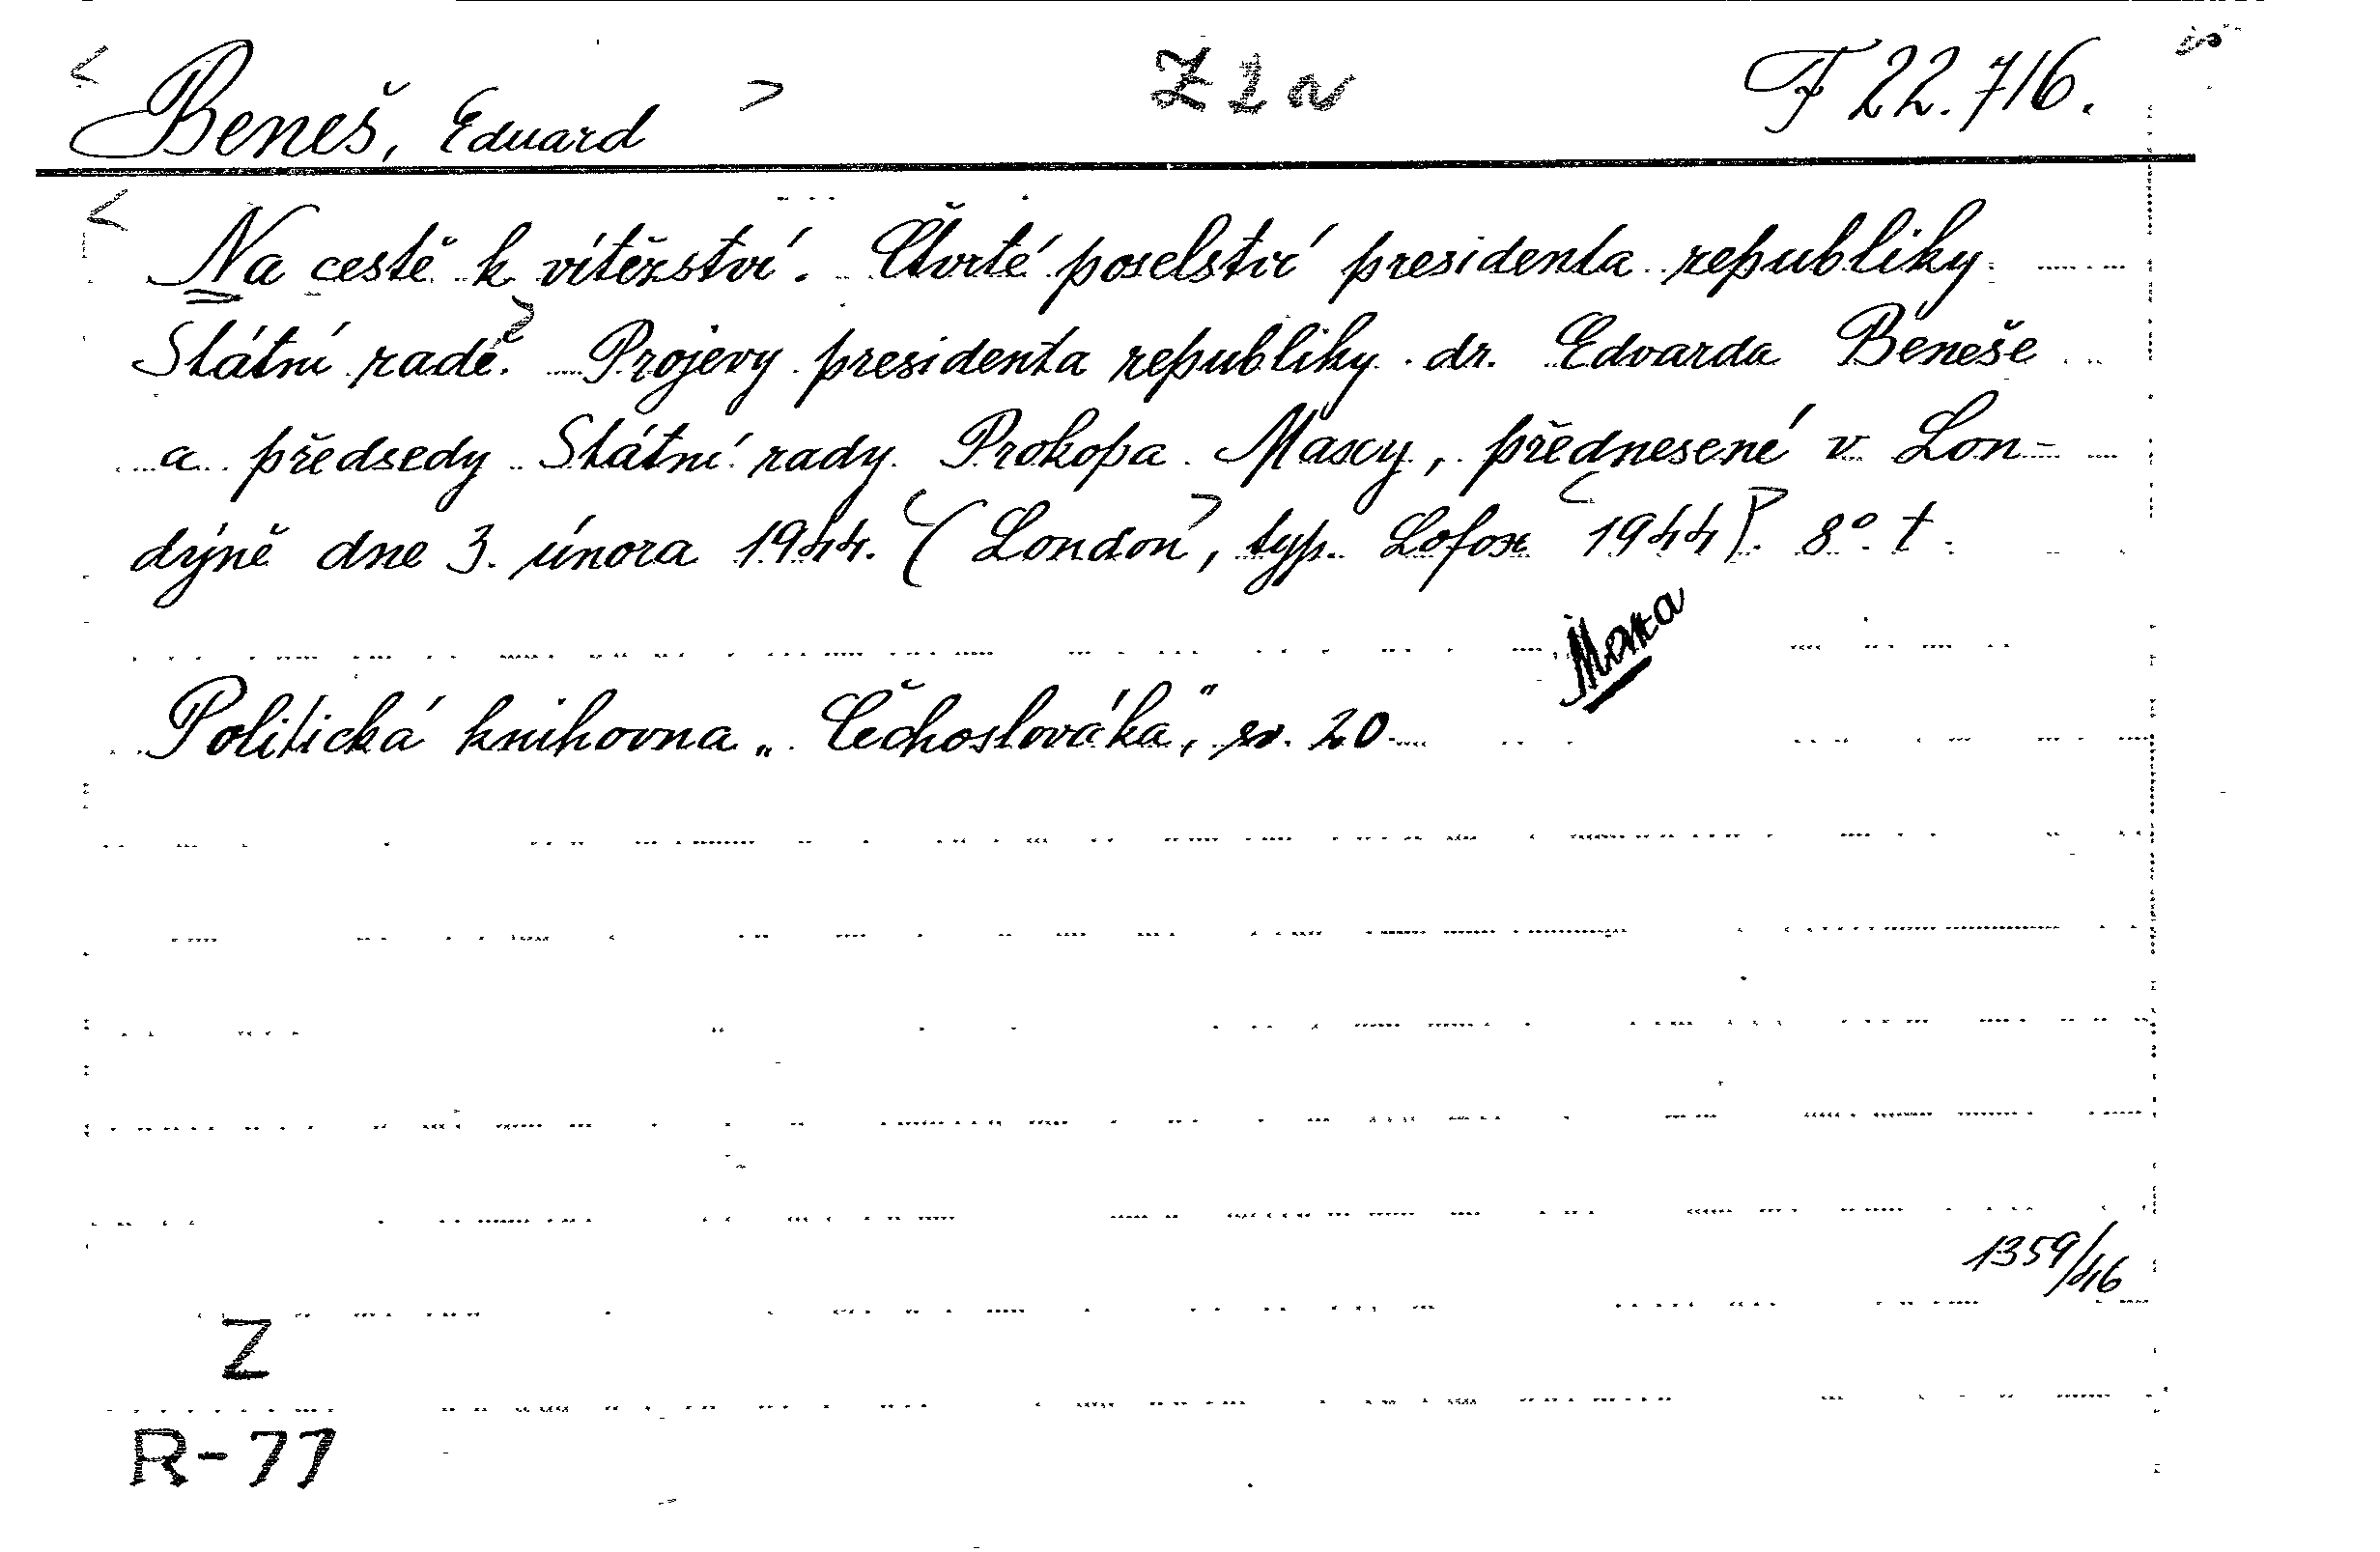 < Beneš, Eduard > Z 2 a F 22.716.
< Na cestě k vítězství. Čtvrté poselství presidenta republiky
Státní radě.> Projevy presidenta republiky dr. Edvarda Beneše
a předsedy Státní rady Prokopa Maxy, přednesené v Lon-
dýně dne 3. února 1944. (<London>, typ. Lofox <1944>). 8°. t.
Politická knihovna „Čechoslováka“, sv. 20
1359/46
Z
R-77